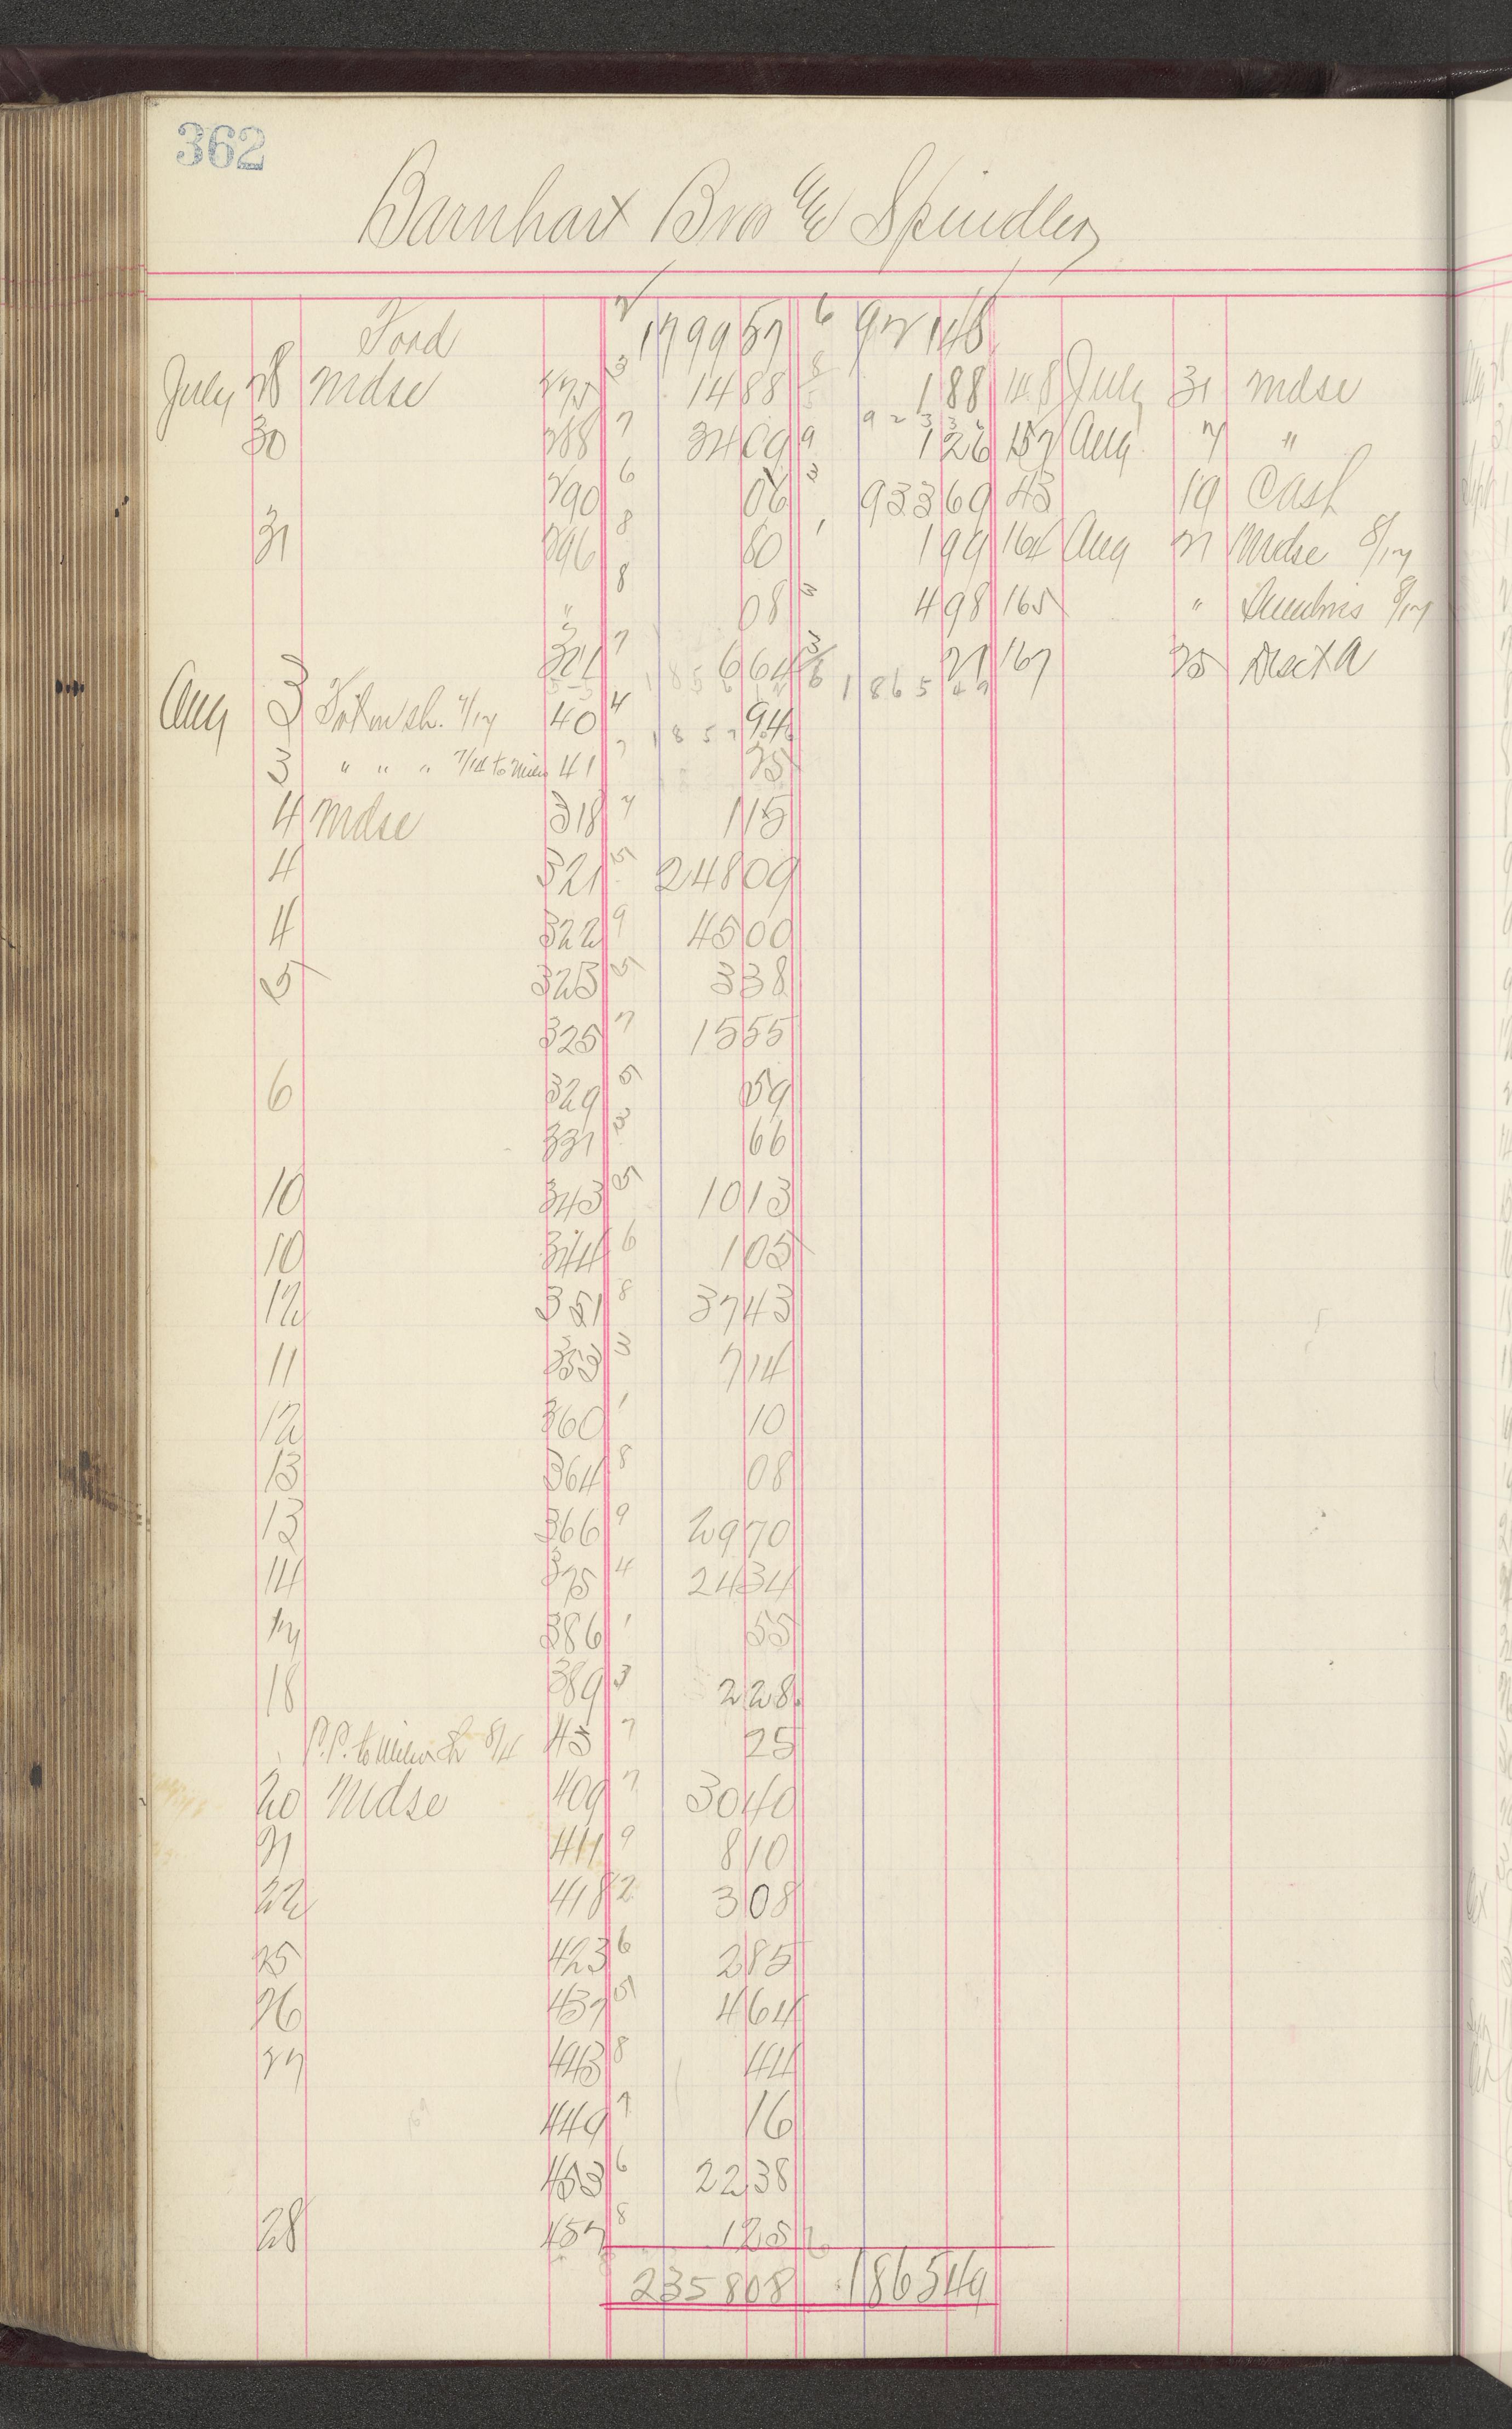 362
Barnhart Bros & Spindler
Ford 2 1799 57 6 92 1 48
July 28 Mdse 275 3 14 88 8 1 88 148 July 31 Mdse
30 288 7 34 09 9 1 26 157 Aug 7 "
290 6 06 3 933 69 43 19 Cash
31 296 8 80 1 1 99 164 Aug 21 Mdse 8/17
" 8 08 4 98 165 " 8/17
7 6 64 3/6 21 167 25 Disct A
1865 49
Aug 3 7/17 40 4 94
3 " " " 7/14 to 41 7 25
4 Mdse 318 7 1 15
4 321 5 248 09
4 322 9 45 00
5 323 5 3 38
325 7 15 55
6 329 5 59
331 3 66
10 343 5 10 13
10 344 6 1 05
12 351 8 37 43
11 353 3 7 14
12 360 1 10
13 364 8 08
13 366 9 29 70
14 375 4 24 34
17 386 1 55
18 389 3 2 28
P.P. to 8/4 43 7 25
20 Mdse 409 7 30 40
21 411 9 8 10
22 418 2 3 08
25 423 6 2 85
26 437 5 4 64
27 443 8 44
449 7 16
453 6 22 38
28 457 8 1 25
2358 08 1865 49